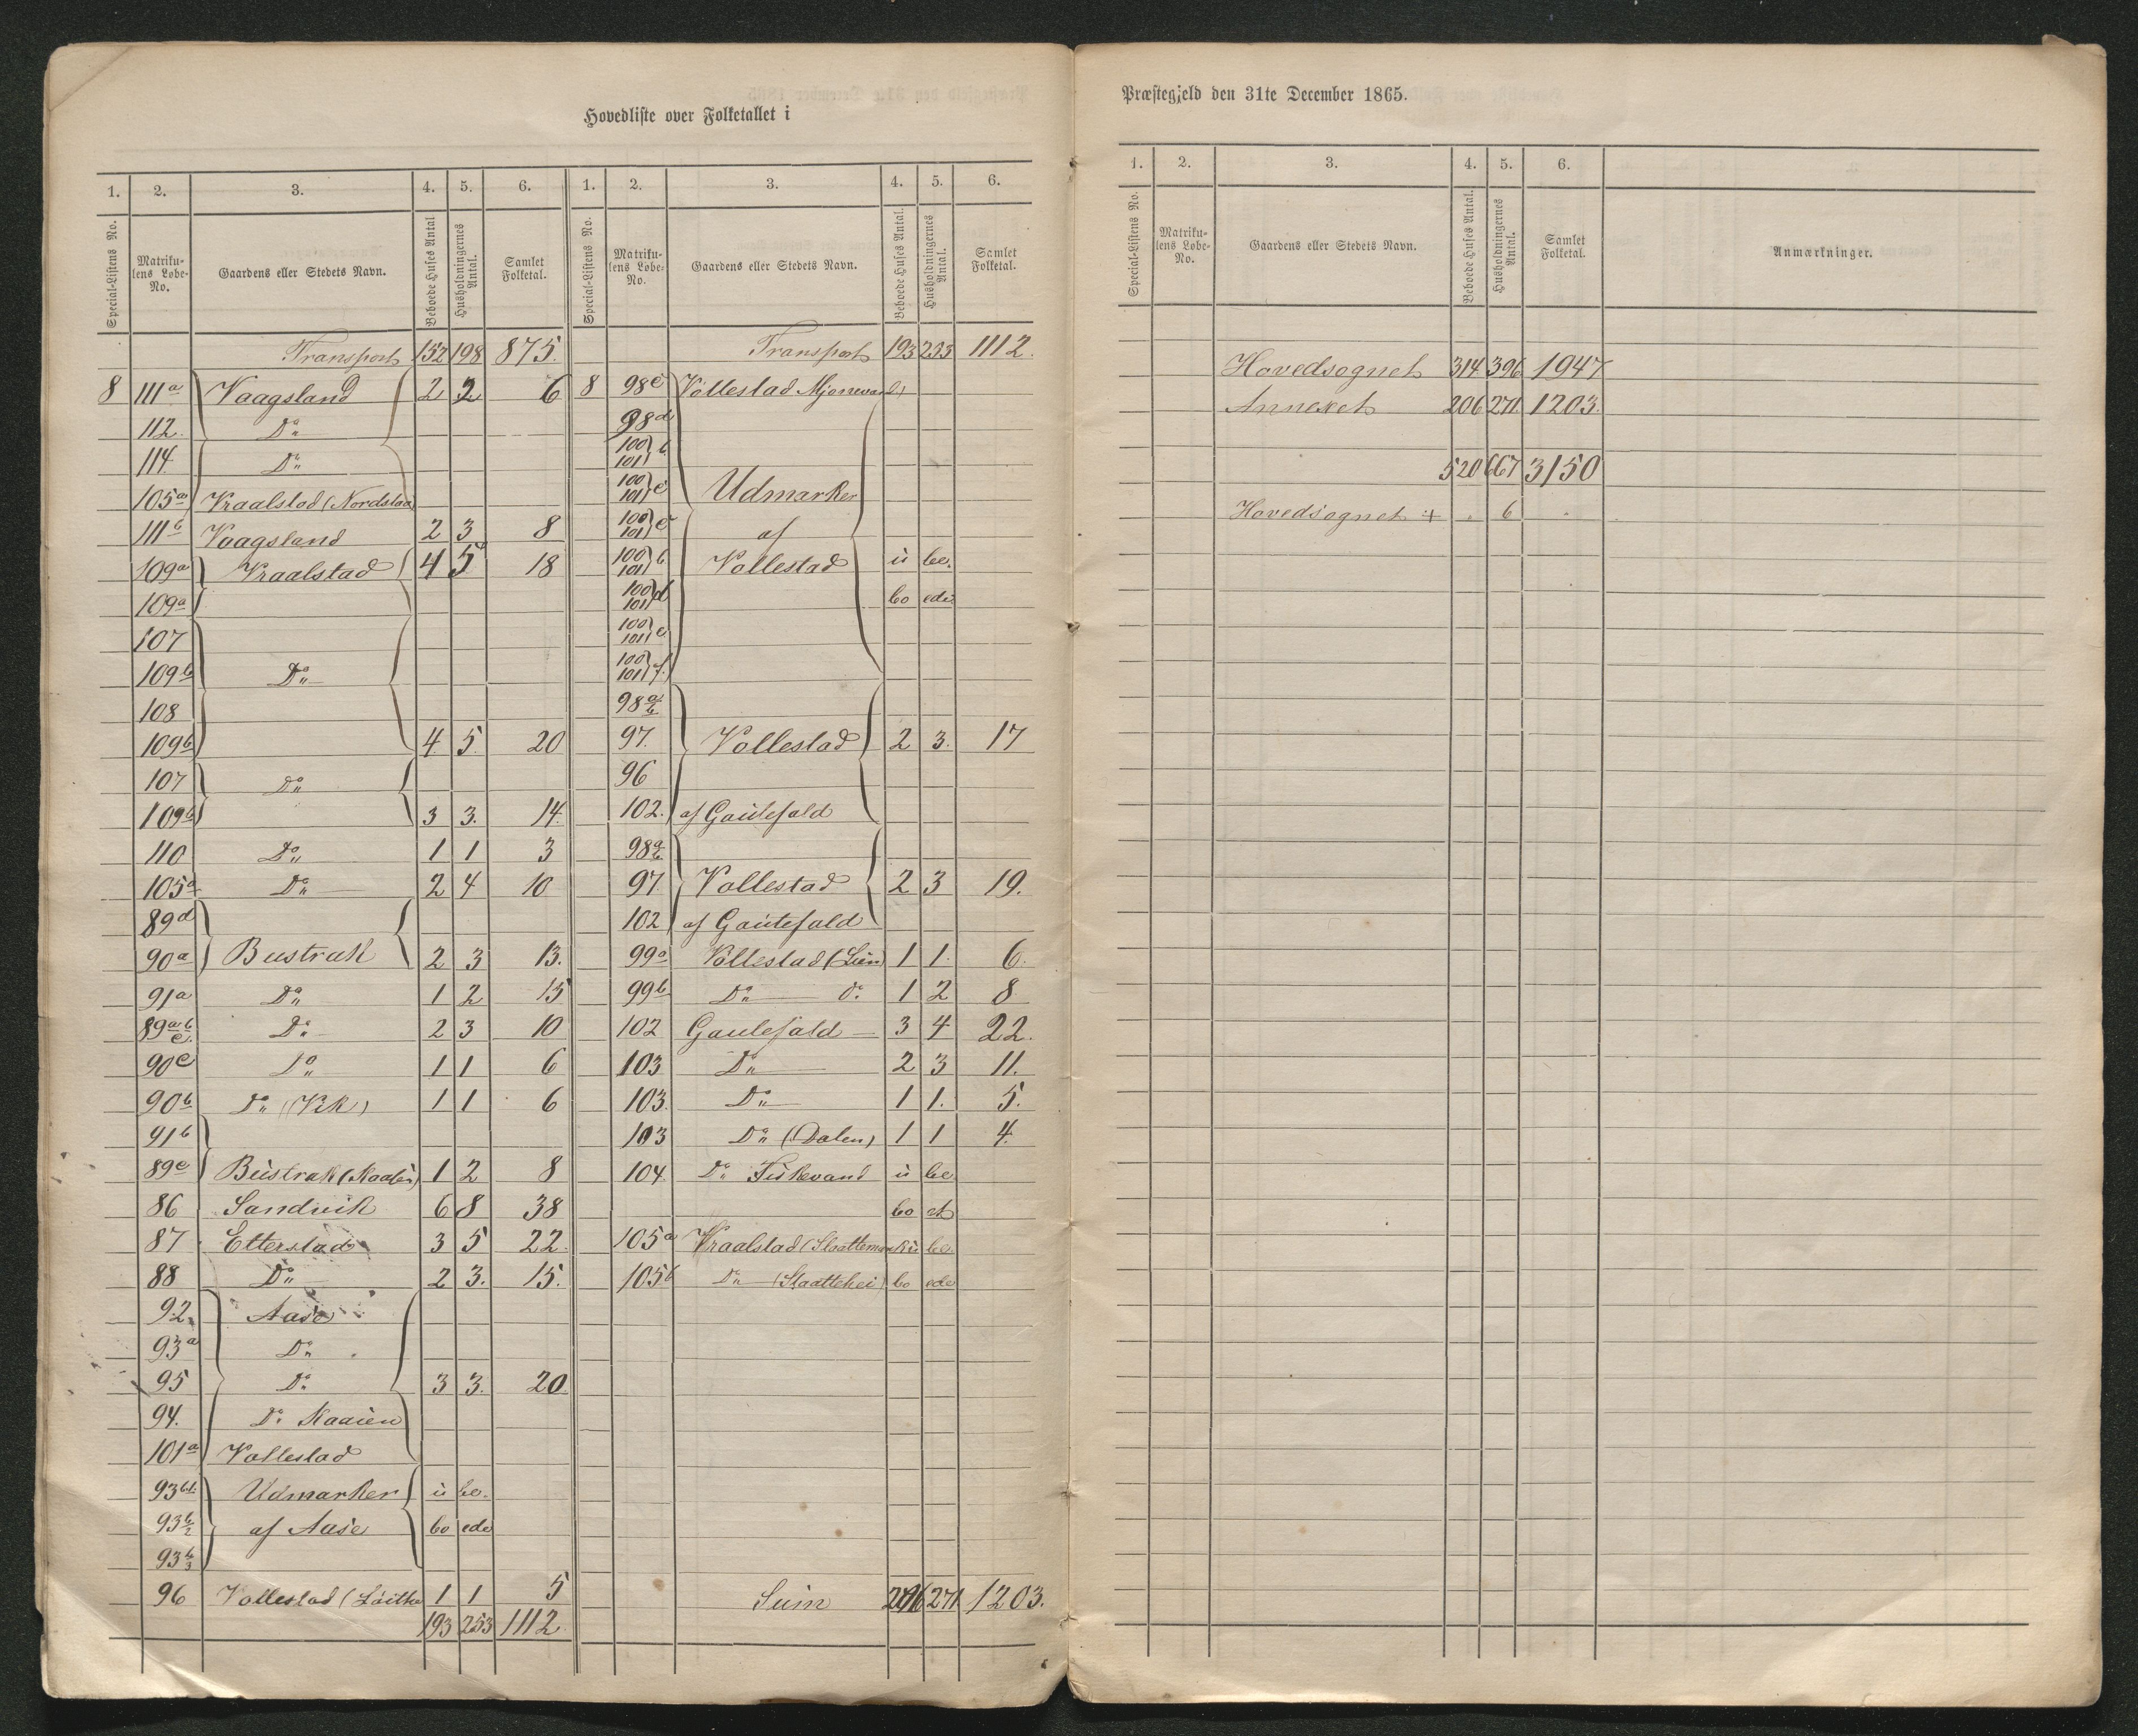 Hovedliste over Folketallet i
1. 2. 3. 4. 5. 6. 1. 2. 3. 4. 5. 6.
Special-Listens No. Matriku-lens Løbe-No. Gaardens eller Stedets Navn. Beboede Huses Antal Husholdningernes Antal. Samlet Folketal. Special-Listens No. Matriku-lens Løbe-No. Gaardens eller Stedets Navn. Beboede Huses Antal. Husholdningernes Antal. Samlet Folketal.
Transport 152 198 875.
8 111a Vaagsland 2 2 6
112. Do
114 Do
105a Vraalstad (Nordslaa)
111b Vaagsland 2 3 8
109a Vraalstad 4 5 18
109a
107
109b Do
108
109b 4 5. 20
107 Do
109b 3 3. 14.
110 Do 1 1 3
105a Do 2 4 10
89d
90a Bustrak 2 3 13.
91a Do 1 2 15
89a b c. Do 2 3 10
90c Do 1 1 6
90b Do (Vik) 1 1 6
91b
89e Bustrak (Kaasen) 1 2 8
86 Sandvik 6 8 38
87 Etterstad 3 5 22.
88 Do 2 3. 15.
92. Aase
93a Do
95 Do 3 3. 20.
94. Do Kaasen
101a Vallestad
93b1 Udmarker u be.
93b/2 af Aase bo ede
93b/3
96 Vollestad 1 1 5
193 253 1112
Transport 193 253 1112.
8 98c Vollestad Mjonevand
98d
100 101 b
100 101 c Udmarker
100 101 c af
100 101 b Vollestad u be.
100 101 d bo ede
100 101 e
100 101 f.
98a/b
97. Vollestad 2 3. 17
96
102. af Gautefald
98a/b
97 Vollestad 2 3 19.
102 af Gautefald
99a Vollestad (Lien) 1 1. 6.
99b Do do 1 2 8
102 Gautefald 3 4 22.
103 Do 2 3 11.
103. Do 1 1. 5.
103 Do (Dalen) 1 1 4.
104 Do Fiskevand u be
bo et
105a Vraalstad (Slaattemark u be.
105b Do (Slaattehei) bo ede
Sum 206 271 1203.
Præstegjeld den 31te December 1865.
1. 2. 3. 4. 5. 6.
Special-Listens No. Matriku-lens Løbe-No. Gaardens eller Stedets Navn. Beboede Huses Antal. Husholdningernes Antal. Samlet Folketal. Anmærkninger.
Hovedsognet 314 396 1947
Annexet 206 271 1203.
520 667 3150
Hovedsognet + . 6 .